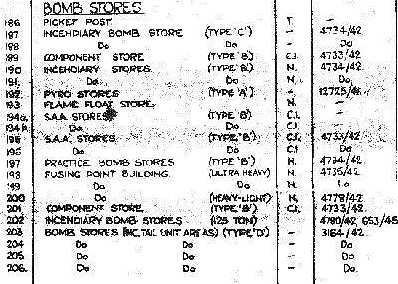 BOMB STORES
186 PICKET POST T. -
187 INCENDIARY BOMB STORE (TYPE 'C') - 4734/42
188 Do Do - Do
189 COMPONENT STORE (TYPE 'B') C.I. 4733/42
190 INCENDIARY STORES (TYPE 'B') N. 4734/42
191 Do Do N. Do
192 PYRO STORES (TYPE 'A') - 12725/41
193 FLAME FLOAT STORE. N. -
194a. S.A.A. STORES (TYPE 'B') C.I. -
194b. Do Do C.I. -
195 S.A.A. STORES (TYPE 'B') C.I. 4733/42
196 Do Do C.I. Do
197 PRACTICE BOMB STORES (TYPE 'B') N. 4734/42
198 FUSING POINT BUILDING. (ULTRA HEAVY) N. 4735/42
199 Do Do N. Do
200 Do (HEAVY-LIGHT) N. 4778/42
201 COMPONENT STORE (TYPE 'B') C.I. 4733/42
202 INCENDIARY BOMB STORES (125 TON) - 4780/42 653/45
203 BOMB STORES (INC. TAIL UNIT AREAS) (TYPE 'D') - 3164/42
204 Do Do - Do
205 Do Do - Do
206. Do Do - Do